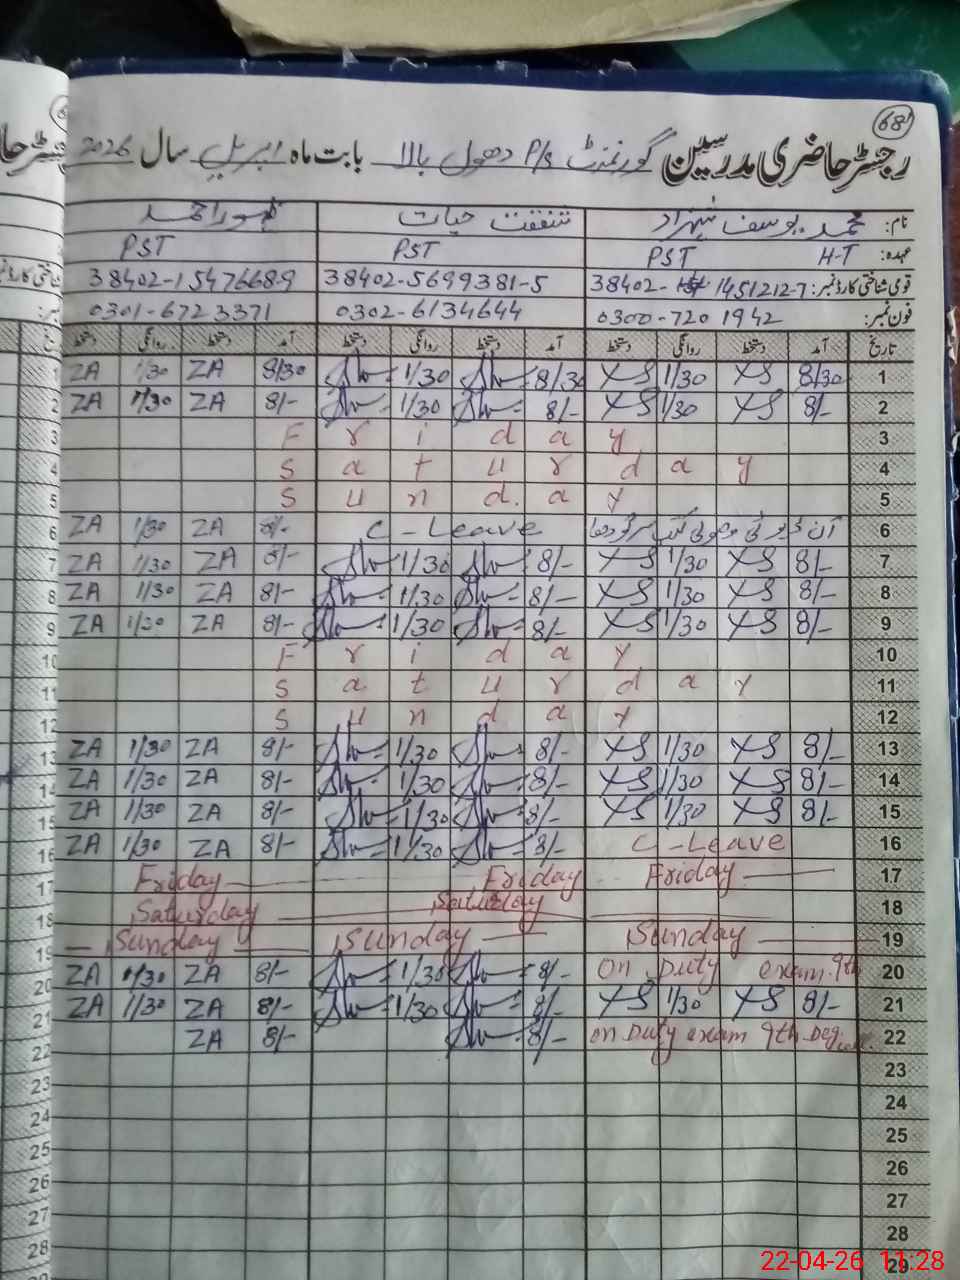 68
رجسٹر حاضری مدرسین گورنمنٹ P/S دھول بالا بابت ماہ اپریل سال 2026
نام: محمد یوسف شہزاد شفقت حیات ظہور احمد
عہدہ: H-T PST PST PST
قومی شناختی کارڈ نمبر: 38402-1451212-7 38402-5699381-5 38402-1547668-9
فون نمبر: 0300-7201942 0302-6134644 0301-6723371
تاریخ آمد دستخط روانگی دستخط آمد دستخط روانگی دستخط آمد دستخط روانگی دستخط
1 8/30 YS 1/30 YS 8/30 1/30 8/30 ZA 1/30 ZA
2 8/- YS 1/30 YS 8/- 1/30 8/- ZA 1/30 ZA
3 Friday
4 Saturday
5 Sunday
6 C-Leave 8/- ZA 1/30 ZA
7 8/- YS 1/30 YS 8/- 1/30 8/- ZA 1/30 ZA
8 8/- YS 1/30 YS 8/- 1/30 8/- ZA 1/30 ZA
9 8/- YS 1/30 YS 8/- 1/30 8/- ZA 1/30 ZA
10 Friday
11 Saturday
12 Sunday
13 8/- YS 1/30 YS 8/- 1/30 8/- ZA 1/30 ZA
14 8/- YS 1/30 YS 8/- 1/30 8/- ZA 1/30 ZA
15 8/- YS 1/30 YS 8/- 1/30 8/- ZA 1/30 ZA
16 C-Leave 8/- 1/30 8/- ZA 1/30 ZA
17 Friday Friday Friday
18 Saturday Saturday
19 Sunday Sunday Sunday
20 on Duty exam 9th 8/- 1/30 8/- ZA 1/30 ZA
21 8/- YS 1/30 YS 8/- 1/30 8/- ZA 1/30 ZA
22 on Duty exam 9th 8/- 8/- ZA
23
24
25
26
27
28
29
22-04-26 11:28